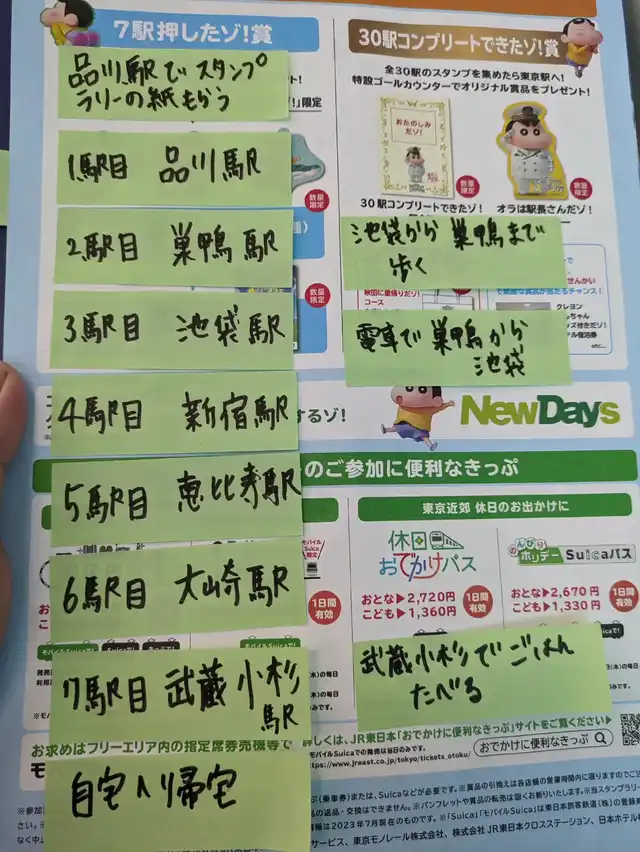 7駅押したゾ!賞
品川駅でスタンプ
ラリーの紙もらう
!」限定
1駅目 品川駅
数量限定
2駅目 巣鴨駅
3駅目 池袋駅
数量限定
4駅目 新宿駅
するゾ!
5駅目 恵比寿駅
6駅目 大崎駅
7駅目 武蔵小杉
駅
自宅へ帰宅
30駅コンプリートできたゾ!賞
全30駅のスタンプを集めたら東京駅へ!
特設ゴールカウンターでオリジナル賞品をプレゼント!
おたのしみ
だゾ!
数量限定
数量限定
30駅コンプリートできたゾ!
オラは駅長さんだゾ!
池袋から巣鴨まで
歩く
せんかい
で素敵な賞品が当たるチャンス!
秋田に里帰りだゾ!
コース
クレヨン
電車で巣鴨から
池袋
NewDays
のご参加に便利なきっぷ
東京近郊 休日のお出かけに
休日
おでかけパス
おとな▶2,720円
こども▶1,360円
1日間
有効
のんびりホリデーSuicaパス
おとな▶2,670円
こども▶1,330円
1日間
有効
モバイル
Suica
限定
1日間
有効
武蔵小杉でごはん
たべる
お求めはフリーエリア内の指定席券売機等で
詳しくは、JR東日本「おでかけに便利なきっぷ」サイトをご覧ください▶
モバイルSuicaでの発売は当日のみです。
https://www.jreast.co.jp/tokyo/tickets_otoku/
おでかけに便利なきっぷ